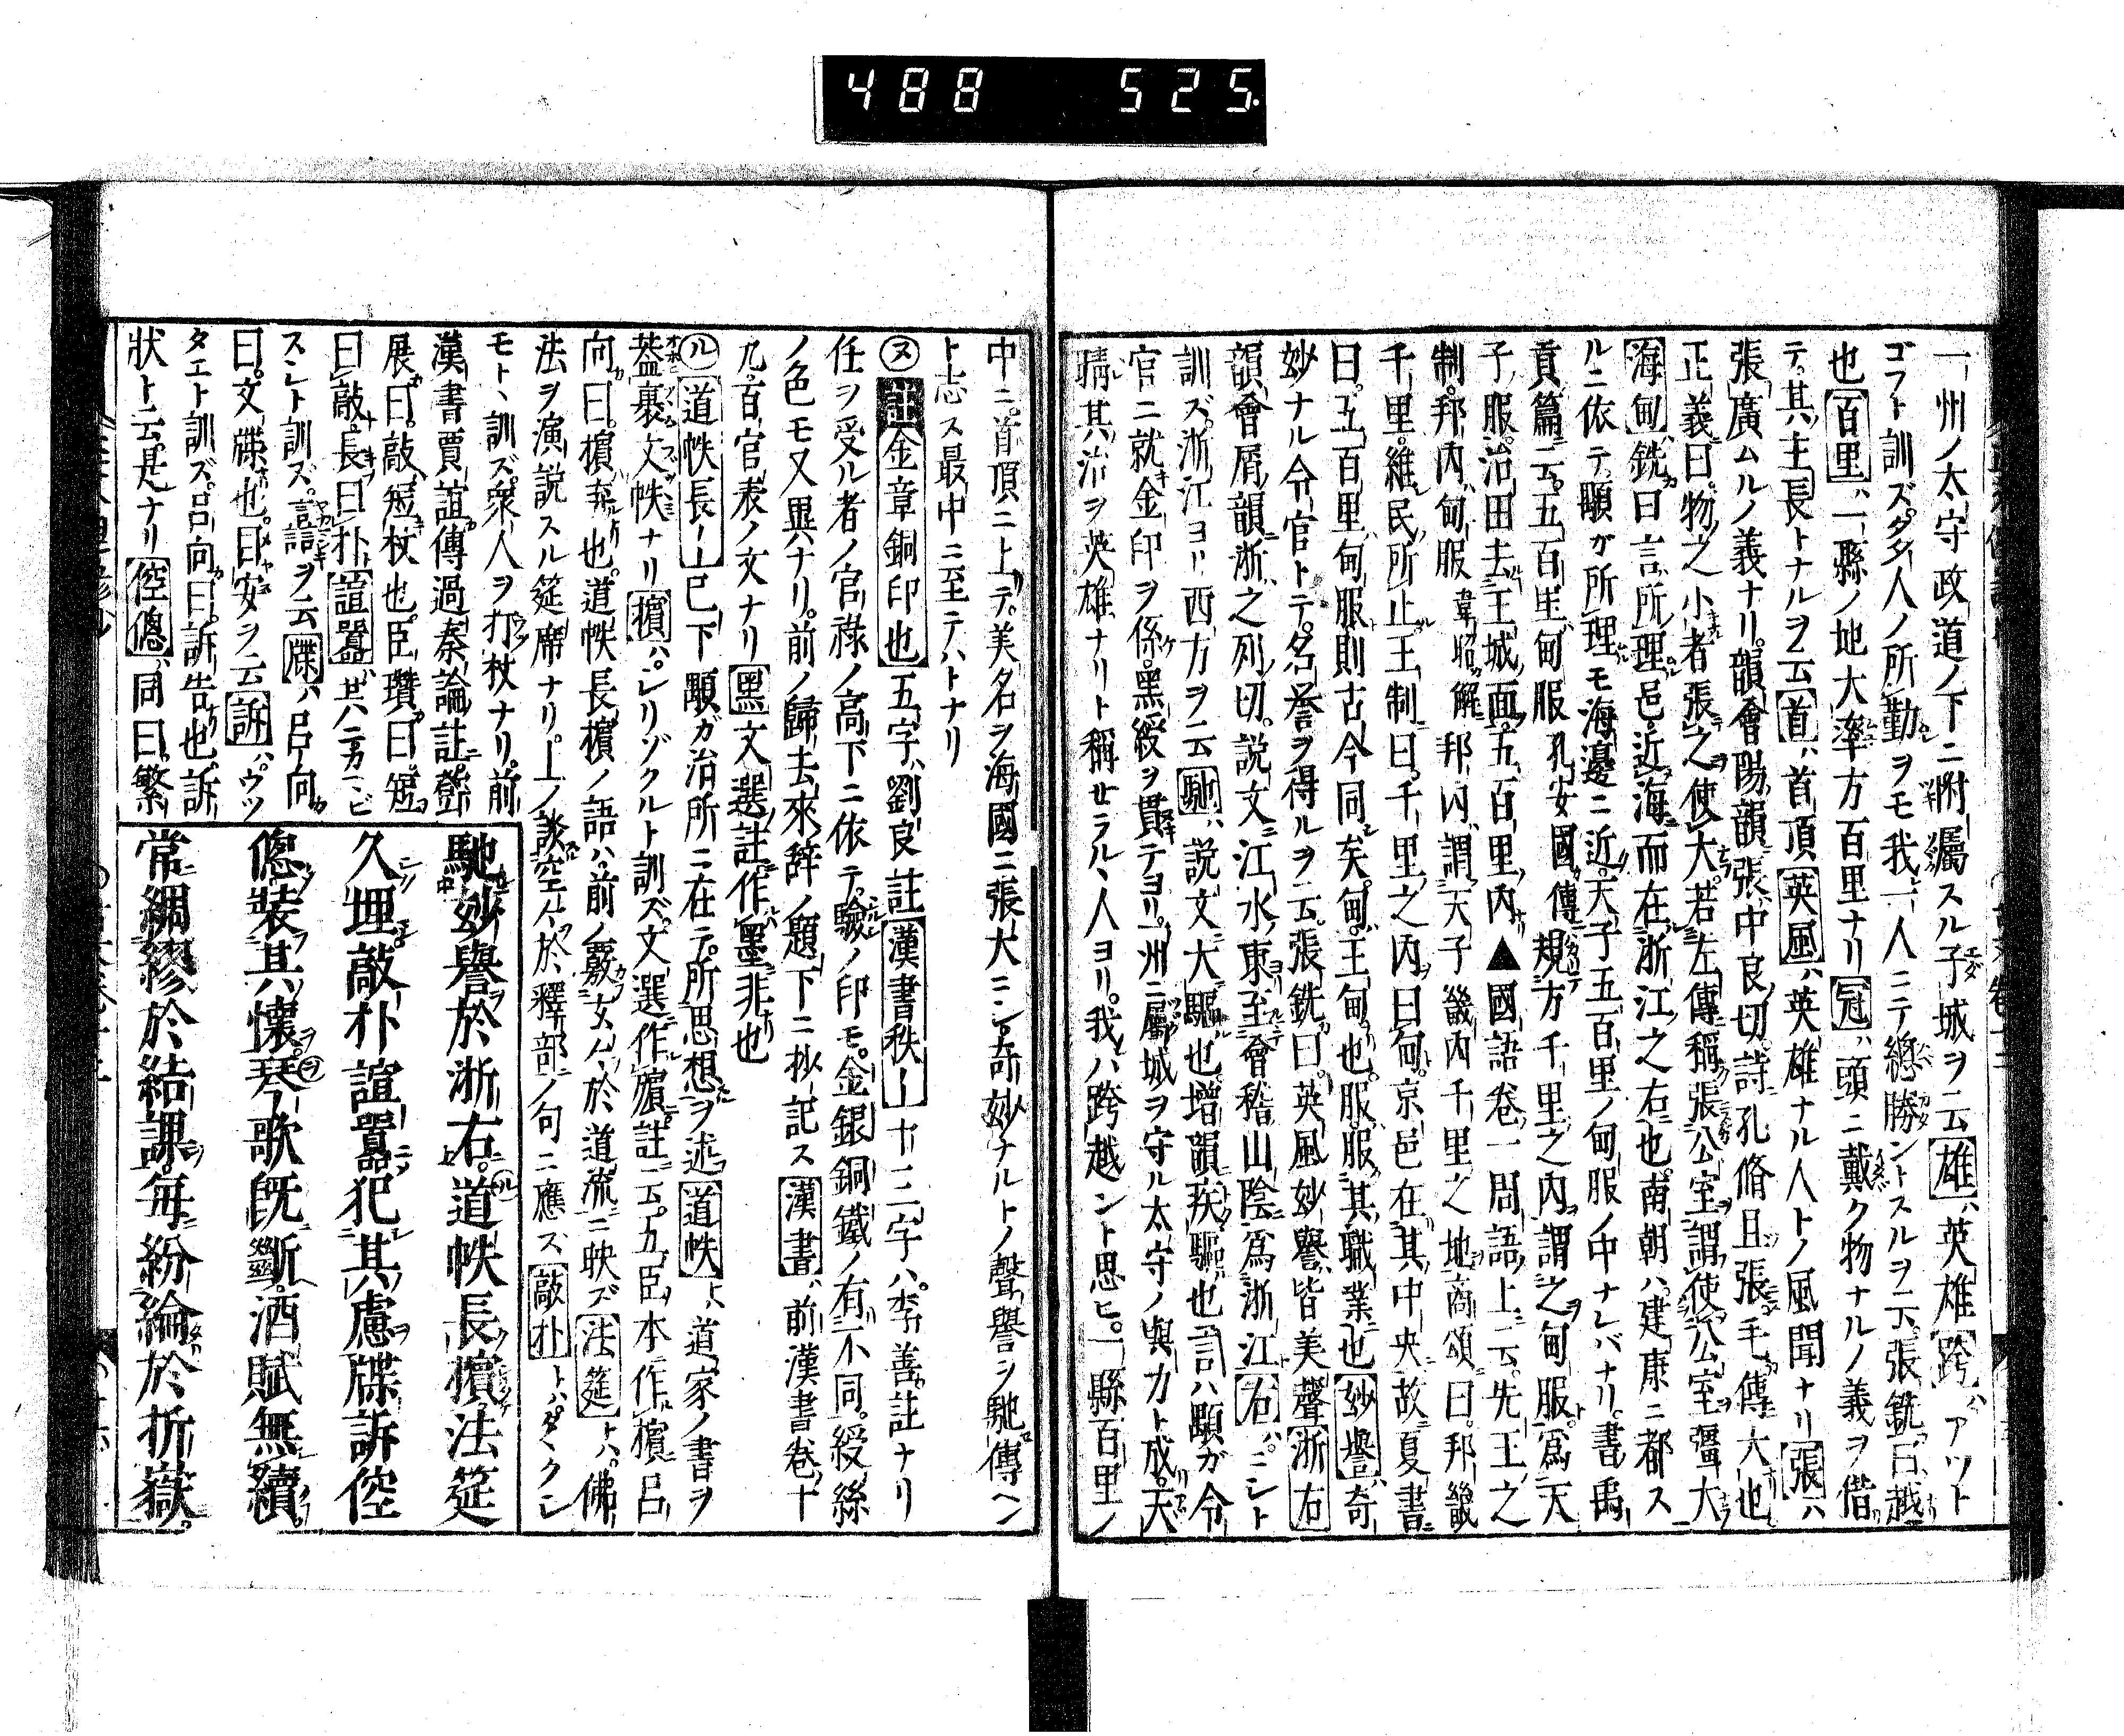 488 525
一州ノ太守政道ノ下ニ附屬スル子城ヲ云雄ハ英雄跨ハアツト
ゴフト訓ズ多人ノ所勤ヲモ我一人ニテ總勝ントスルヲ云張銑曰越
也百里ハ一縣ノ地大率方百里ナリ冠ハ頭ニ戴ク物ナルノ義ヲ偕
テ其主長トナルヲ云首ハ首頂英風ハ英雄ナル人トノ風聞ナリ張ハ
張廣ムルノ義ナリ韻會陽韻張中良切詩孔脩且張毛傳大也
正義曰物之小者張之使大若左傳稱張公室謂使公室彊大
海甸銑曰言所理邑近海而在浙江之右也南朝ハ建康ニ都ス
ルニ依テ顒ガ所理モ海邊ニ近天子五百里ノ甸服ノ中ナレバナリ書禹
貢篇云五百里甸服孔安國傳規方千里之内謂之甸服爲天
子服治田去王城面五百里内▲國語卷一周語上云先王之
制邦内甸服韋昭解邦内謂天子畿内千里之地商頌曰邦畿
千里維民所止王制曰千里之内曰甸京邑在其中央故夏書
曰五百里甸服則古今同矣甸王甸也服服其職業也妙譽ハ奇
妙ナル令官トテ名譽ヲ得ルヲ云張銑曰英風妙譽皆美聲浙右
韻會屑韻浙之列切説文江水東至會稽山陰爲浙江右ハニシト
訓ズ浙江ヨリ西方ヲ云馳ハ説文大驅也増韻疾驅也言ハ顒ガ令
官ニ就キ金印ヲ係黒綬ヲ貫テヨリ一州ニ屬城ヲ守ル太守ノ與力ト成天
晴其治ヲ英雄ナリト稱セラル人ヨリ我ハ跨越ント思ヒ一縣百里ノ
中ニ首頂ニ上テ美名ヲ海國ニ張大ニシ奇妙ナルトノ聲譽ヲ馳傳ヘン
ト志ス最中ニ至テハトナリ
ヌ註金章銅印也五字ハ劉良註漢書秩ー十二字ハ李善註ナリ
任ヲ受ル者ノ官祿ノ高下ニ依テ驗ノ印モ金銀銅鐵ノ有不同綬絲
ノ色モ又異ナリ前ノ歸去來辞ノ題下ニ抄記ス漢書ハ前漢書卷十
九百官表ノ文ナリ黒文選註作墨非也
ル道帙長ー上巳下顒ガ治所ニ在テ所思想ヲ述道帙トハ道家ノ書ヲ
葢裹文帙ナリ擯ハシリゾクルト訓ズ文選作殯註云五臣本作擯呂
向曰擯棄也道帙長擯ノ語ハ前ノ覈玄ー於道流ニ映ズ法筵トハ佛
法ヲ演説スル筵席ナリ上ノ談空ー於釋部ノ句ニ應ズ敲朴トハタヽクシ
モトヽ訓ズ衆人ヲ打杖ナリ前
漢書賈誼傳過秦論註鄧
展曰敲短杖也臣瓚曰短
曰敲長曰朴諠囂ハ共ニカマビ
スシト訓ズ諠譁ヲ云牒ハ呂向
曰文牒也目安ヲ云訴ハウツ
タエト訓ズ呂向曰訴告也訴
状ト云是ナリ倥傯ハ同曰繁
馳妙譽於浙右道帙長擯法筵
久埋敲朴諠囂犯其慮牒訴倥
傯裝其懷琴歌既斷酒賦無續
常綢繆於結課毎紛綸於折嶽